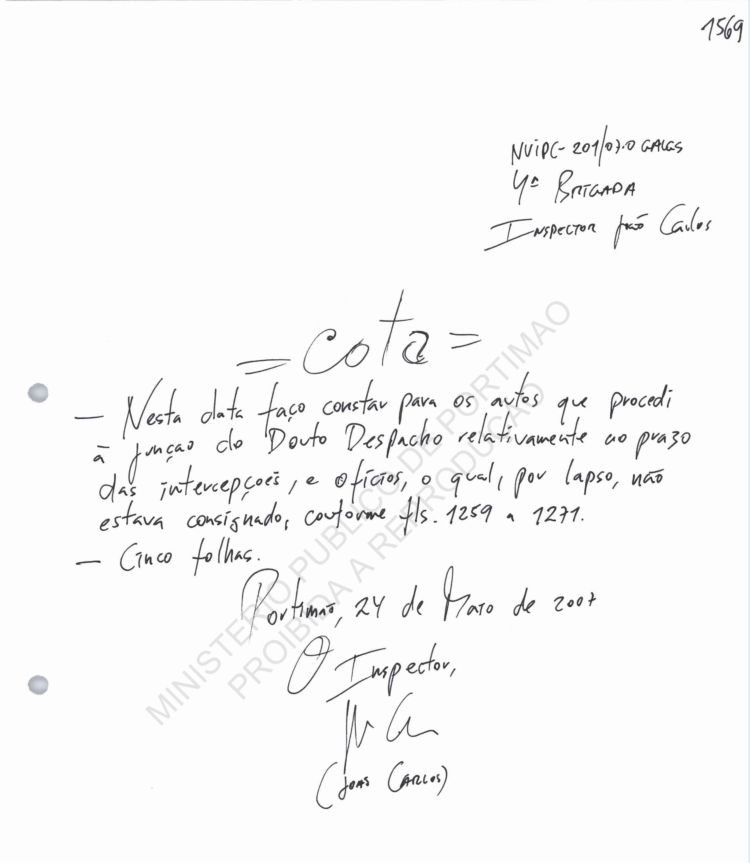 1569
NUIPC- 201/07.0 GALGS
4ª BRIGADA
INSPECTOR João Carlos
= cota =
— Nesta data faço constar para os autos que procedi
à junção do Douto Despacho relativamente ao prazo
das intercepções, e ofícios, o qual, por lapso, não
estava consignado, conforme fls. 1259 a 1271.
— Cinco folhas.
Portimão, 24 de Maio de 2007
O Inspector,
(João Carlos)
MINISTERIO PUBLICO DE PORTIMAO
PROIBIDA A REPRODUÇÃO